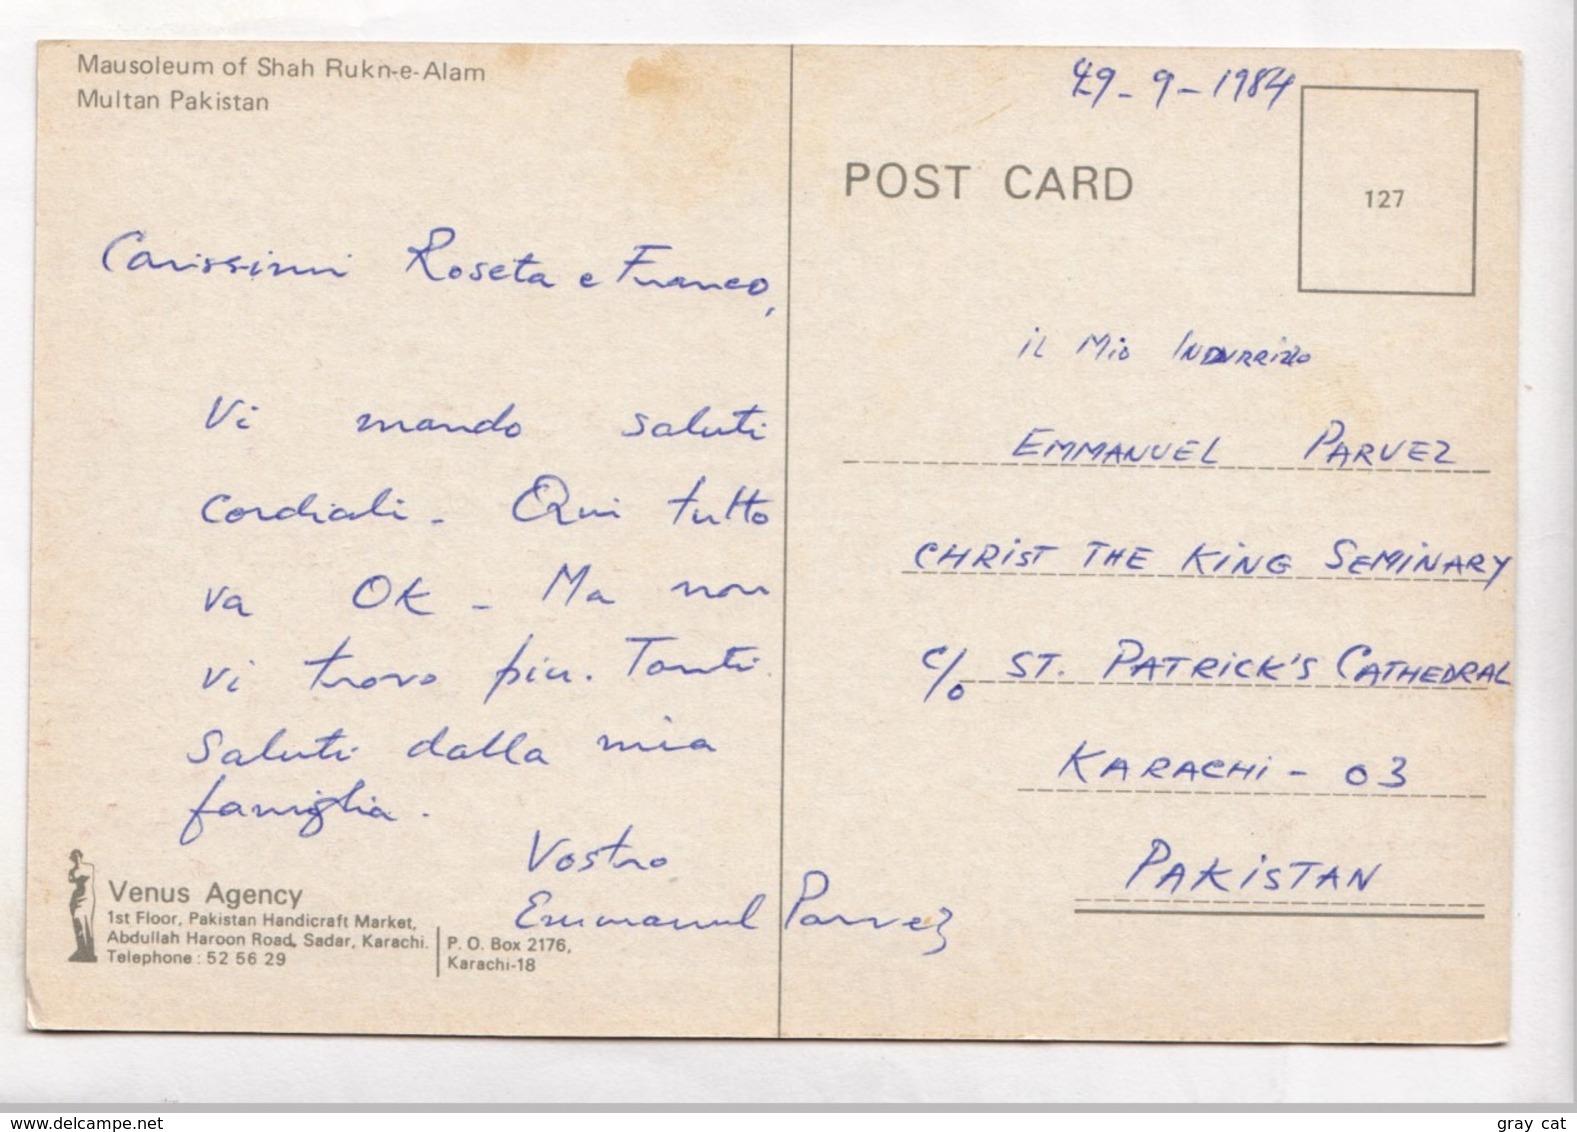 Mausoleum of Shah Rukn-e-Alam
Multan Pakistan
Carissimi Roseta e Franco,
Vi mando saluti
cordiali - Qui tutto
va OK - Ma non
vi trovo più. Tanti
saluti dalla mia
famiglia.
Vostro
Emmanuel Parvez
Venus Agency
1st Floor, Pakistan Handicraft Market,
Abdullah Haroon Road, Sadar, Karachi.
Telephone : 52 56 29
P. O. Box 2176,
Karachi-18
29-9-1984
POST CARD
127
iL Mio
EMMANUEL PARVEZ
CHRIST THE KING SEMINARY
C/o ST. PATRICK'S CATHEDRAL
KARACHI - 03
PAKISTAN
www.delcampe.net
gray cat